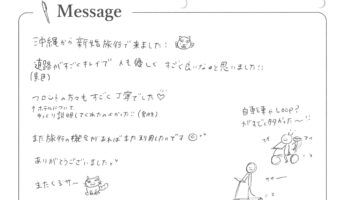 Message
沖縄から新婚旅行で来ました!!
道路がすごくキレイで人も優しくすごく良いなぁと思いました!!
(景色)
フロントの方々もすごく丁寧でした♡
↑ホテルについて
ゆっくり説明してくれたのでよかった!!
また旅行の機会があればまた利用したいです
ありがとうございました
またくるサー
自転車やLOOP?
がすごく多かった〜!!